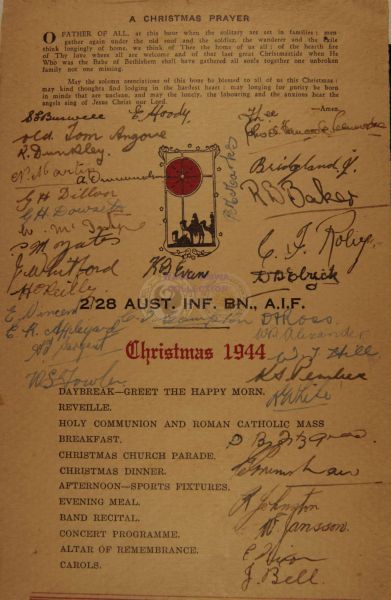 A CHRISTMAS PRAYER
O FATHER OF ALL, at this hour when the solitary are set in families; men
gather again under the old roof and the soldier, the wanderer and the exile
think longingly of home, we think of Thee the home of us all; of the hearth fire
of Thy love where all are welcome and of that last great Christmastide when He
Who was the Babe of Bethlehem shall have gathered all souls together one unbroken
family not one missing.
May the solemn associations of this hour be blessed to all of us this Christmas;
may kind thoughts find lodging in the hardest heart; may longing for purity be born
in minds that are unclean, and may the lonely, the labouring and the anxious hear the
angels sing of Jesus Christ our Lord.
—Amen.
E Hoody
Old Tom Angove
R. Dunkley.
A Dunn
Bridgland J.
G H Dillon
R D Baker
G H
W. Mc
M Yates
C. J. Roby
E Whitford
K D Evan
D B Elrick
H O'Reilly
COLLECTION
2/28 AUST. INF. BN., A.I.F.
E Vincent
Compton
D H Ross
E. R. Appleyard
W H Alexander
Sargent
Christmas 1944
W J Hill
W S Fowler
K S Pember
DAYBREAK—GREET THE HAPPY MORN.
K White
REVEILLE.
HOLY COMMUNION AND ROMAN CATHOLIC MASS
BREAKFAST.
D B
CHRISTMAS CHURCH PARADE.
CHRISTMAS DINNER.
AFTERNOON—SPORTS FIXTURES.
EVENING MEAL.
R Johnston
BAND RECITAL.
W. Jansson.
CONCERT PROGRAMME.
ALTAR OF REMEMBRANCE.
E Nixon
CAROLS.
J. Bell.